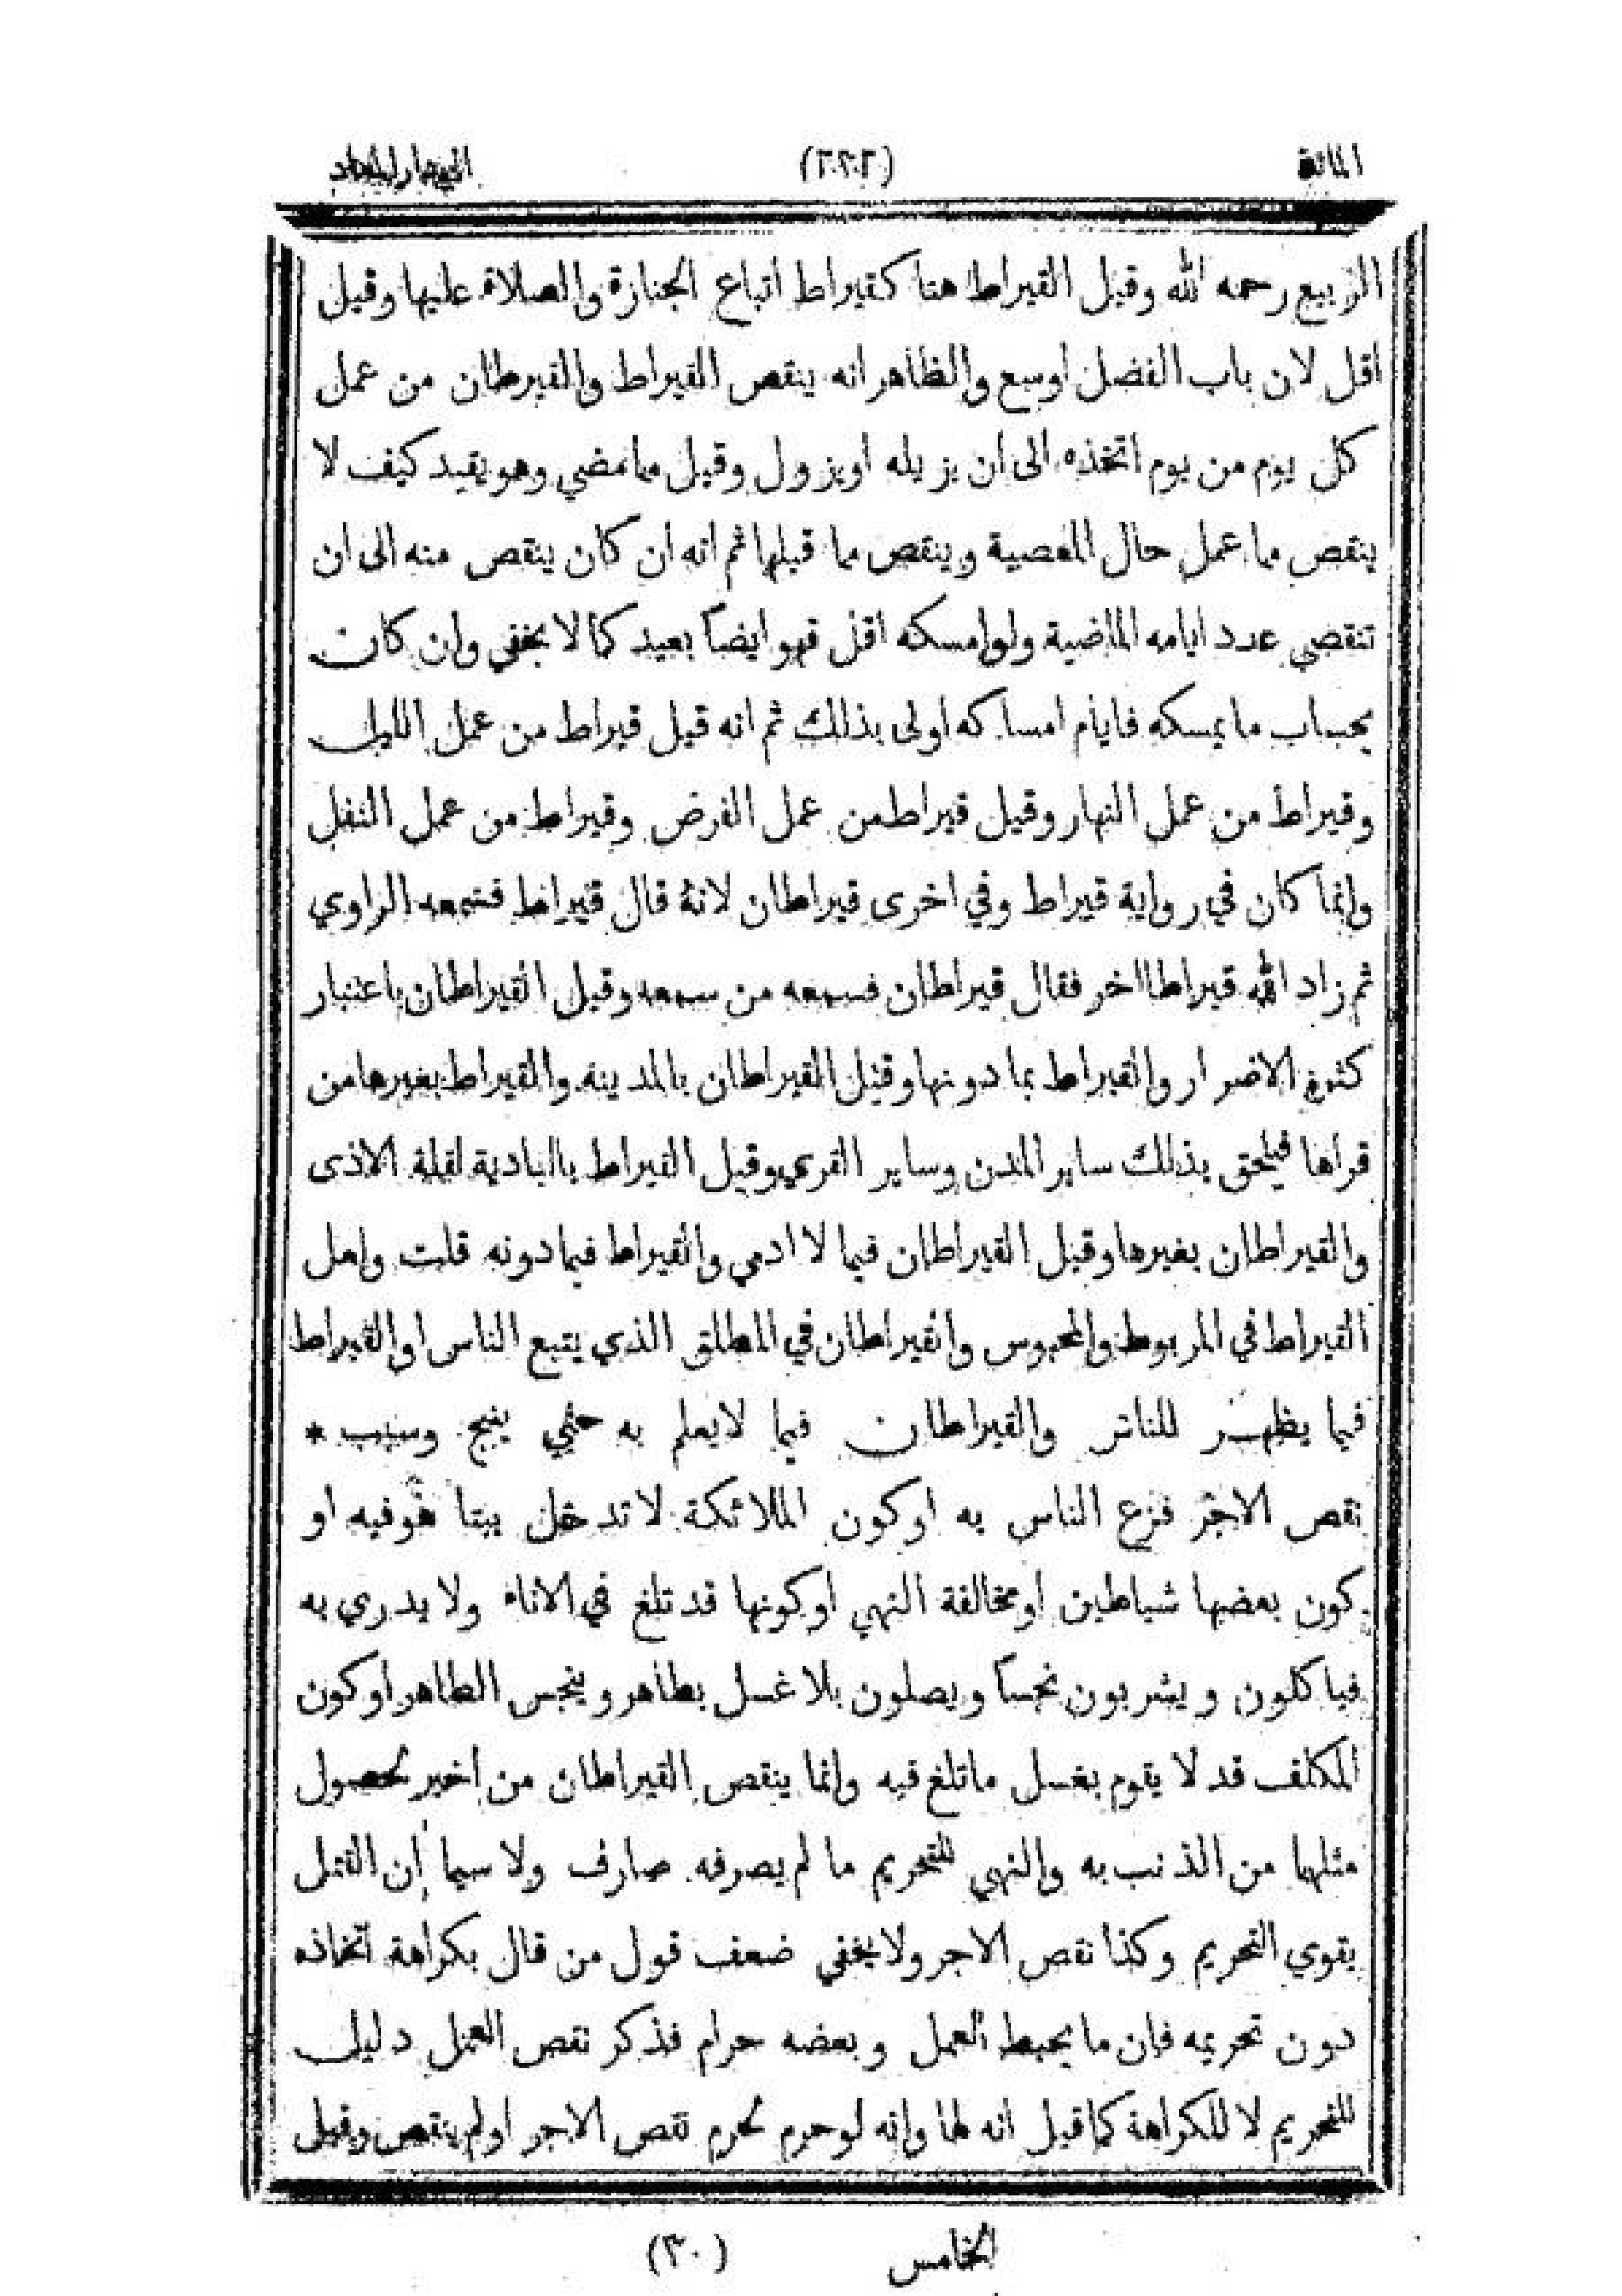 المائدة (٢٣٢) هميان الزاد
الربيع رحمه الله وقيل القيراط هنا كقيراط اتباع الجنازة والصلاة عليها وقيل
اقل لان باب الفضل اوسع والظاهر انه ينقص القيراط والقيرطان من عمل
كل يوم من يوم اتخذه الى ان يزيله او يزول وقيل مما مضي وهو بقيد كيف لا
ينقص مما عمل حال المعصية وينقص مما قبلها ثم انه ان كان ينقص منه الى ان
تنقصي عدد ايامه الماضية ولو امسكه اقل فهو ايضاً بعيد كما لا يخفي وان كان
بحساب ما يمسكه فايام امساكه اولى بذالك ثم انه قيل قيراط من عمل الليل
وقيراط من عمل النهار وقيل قيراط من عمل الفرض وقيراط من عمل النفل
وانما كان في رواية قيراط وفي اخرى قيراطان لانه قال قيراط فسمعه الراوي
ثم زاد الله قيراطا اخر فقال قيراطان فسمعه من سمعه وقيل القيراطان باعتبار
كثرة الاضرار والقيراط بما دونها وقيل القيراطان بالمدينه والقيراط بغيرها من
قراها فيلحق بذلك ساير المدن وساير القري وقيل القيراط باالبادية لقلة الاذى
والقيراطان بغيرها وقيل القيراطان فيما لا ادمي والقيراط فيما دونه قلت ولعل
القيراط في المربوط والمحبوس والقيراطان في المطلق الذي يتبع الناس او القيراط
فيما يظهر للناس والقيراطان فيما لا يعلم به حتي ينبح وسبب *
نقص الاجر فزع الناس به او كون الملائكة لا تدخل بيتا هو فيه او
كون بعضها شياطين او مخالفة النهي او كونها قد تلغ في الاناء ولا يدري به
فياكلون ويشربون نجساً ويصلون بلا غسل بطاهر وينجس الطاهر او كون
المكلف قد لا يقوم بغسل ما تلغ فيه وانما ينقص القيراطان من اخير لحصول
مثلهما من الذنب به والنهي للتحريم ما لم يصرفه صارف ولا سيما إن القتل
يقوي التحريم وكذا نقص الاجر ولا يخفي ضعف قول من قال بكراهة اتخاذه
دون تحريمه فان ما يحبط العمل وبعضه حرام فذكر نقص العمل دليل
للتحريم لا للكراهة كما قيل انه لها وانه لو حرم لحرم نقص الاجر او لم ينقص وقيل
الخامس (٣٠)